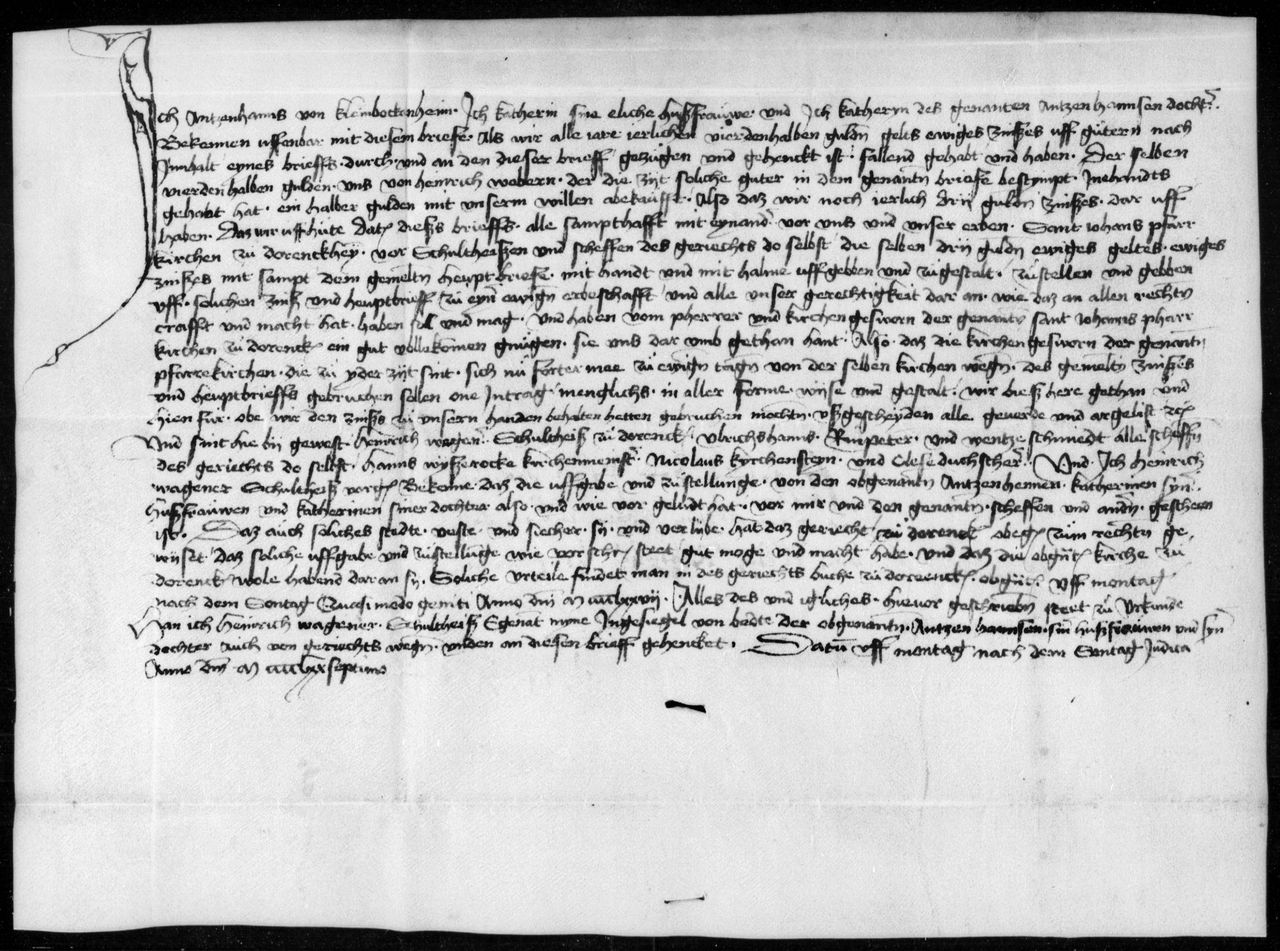 Ich Antzenhanns von kleinbockenheim · Ich katherin sine eliche hußfrauwe · vnd Ich katheryn des genanten Antzenhannsen docht͛ ·
Bekennen vffenbar mit diesem brieffe · Als wir alle iare ierlichen vierdenhalben guldn̄ gelts ewiges zinßes vff gütern nach
Innhalt eynes brieffs · durch vnd an den dieser brieff getzügen vnd gehenckt ist · fallend gehabt vnd haben · Der selben
vierden halben gulden · vns von heinrich webern · der die zijt soliche güter in dem genantn̄ brieffe bestympt · Inehandts
gehabt hat · ein halber gulden mit vnserm willen abekaufft · Also daz wir noch ierlich drij guldn̄ zinßes · dar vff
haben · Daz wir vff hüte dat͛ dießs brieffs · alle sampthafft mit eynand͛ · vor vns vnd vnser erben · Sant iohans pfarr
kirchen zu dorenckhey · vor Schultheißen vnd scheffen des geriechts do selbst die selben drij guldn̄ ewiges geltes · ewiges
zinßes mit sampt dem gemeltn̄ heupt brieffe · mit handt vnd mit halme vff gebben vnd zugestalt · zustellen vnd gebben
vff · solichen zinß vnd heuptbrieff zu eyn̄ ewign̄ erbeschafft vnd alle vnser gerechtigkeit dar an · wie daz an allen rechtn̄
crafft vnd macht hat · haben sal vnd mag · vnd haben vom pherrer vnd kirchen gesworn der genantn̄ sant iohanns pharr
kirchen zu dorenck͛ ein gut vollekomen gnügen · sie vns dar vmb gethan hant · Also · daz die kirchengesworn der genant͛
pfarrekirchen · die zu yder zijt sint · sich nü forter mee zu ewign̄ tagn̄ von der selben kirchen wegn̄ · des gemeltn̄ zinßes
vnd heuptbrieffs gebruchen sollen one Intrag menglichs · in aller forme · wijse vnd gestalt · wir dieß here gethan vnd
hien für · obe wir den zinßs zu vnsern handen behalten hetten gebruchen mochtn̄ · vßgescheyden alle geuerde vnd argelist
Vnd sint hie bij gewest · heinrich wagen͛ · Schultheiß zu dorenck͛ · vlrichshanns · Rinpeter · vnd wentze schmiedt alle scheffn̄
des geriechts do selbst · hanns wyßerocke kirchenmeinst͛ · Nicolaus kyrchenstein · vnd Clese duchscher͛ · Vnd Ich heinrich
wagener Schultheiß vorg͛ Bekenne · daz die vffgabe vnd zustellunge · von den obgenantn̄ Antzen hennen · katherinen syn͛
hußfrauwen vnd katherinen siner dochter also · vnd wie vor gelüdt hat · vor mir vnd den genantn̄ · scheffen vnd andn̄ · gescheen
ist · Daz auch soliches stedte · veste · vnd siecher · sij · vnd verlibe · hat daz geriecht zu dorenck͛ obeg͛ zum rechtn̄ ge,
wijset · daz soliche vffgabe vnd zustellunge wie vorschr͛ steet gut moge vnd macht habe · vnd daz die obgn̄t͛ kirche zu
dorenck͛ wole habend daran sij · Soliche vrteile findet man in des geriechts buche zu doreenck͛ · obgn̄t͛ vff montag
nach dem Sontag Quasi modo geniti Anno dn̄i M cccclxxvij · Alles des vnd igliches · hieuor geschriebn̄ steet zu vrkunde
Han ich heinrich wagener · Schultheiß Egenat myne Ingesiegel von bedte der obgenantn̄ · Antzen hannsen · sin hußfrauwen vnd syn͛
dochter auch von geriechts wegn̄ · vnden an diesen brieff gehencket · Datū vff montag nach dem Sontag Judica
Anno dn̄i M cccclxxseptimo